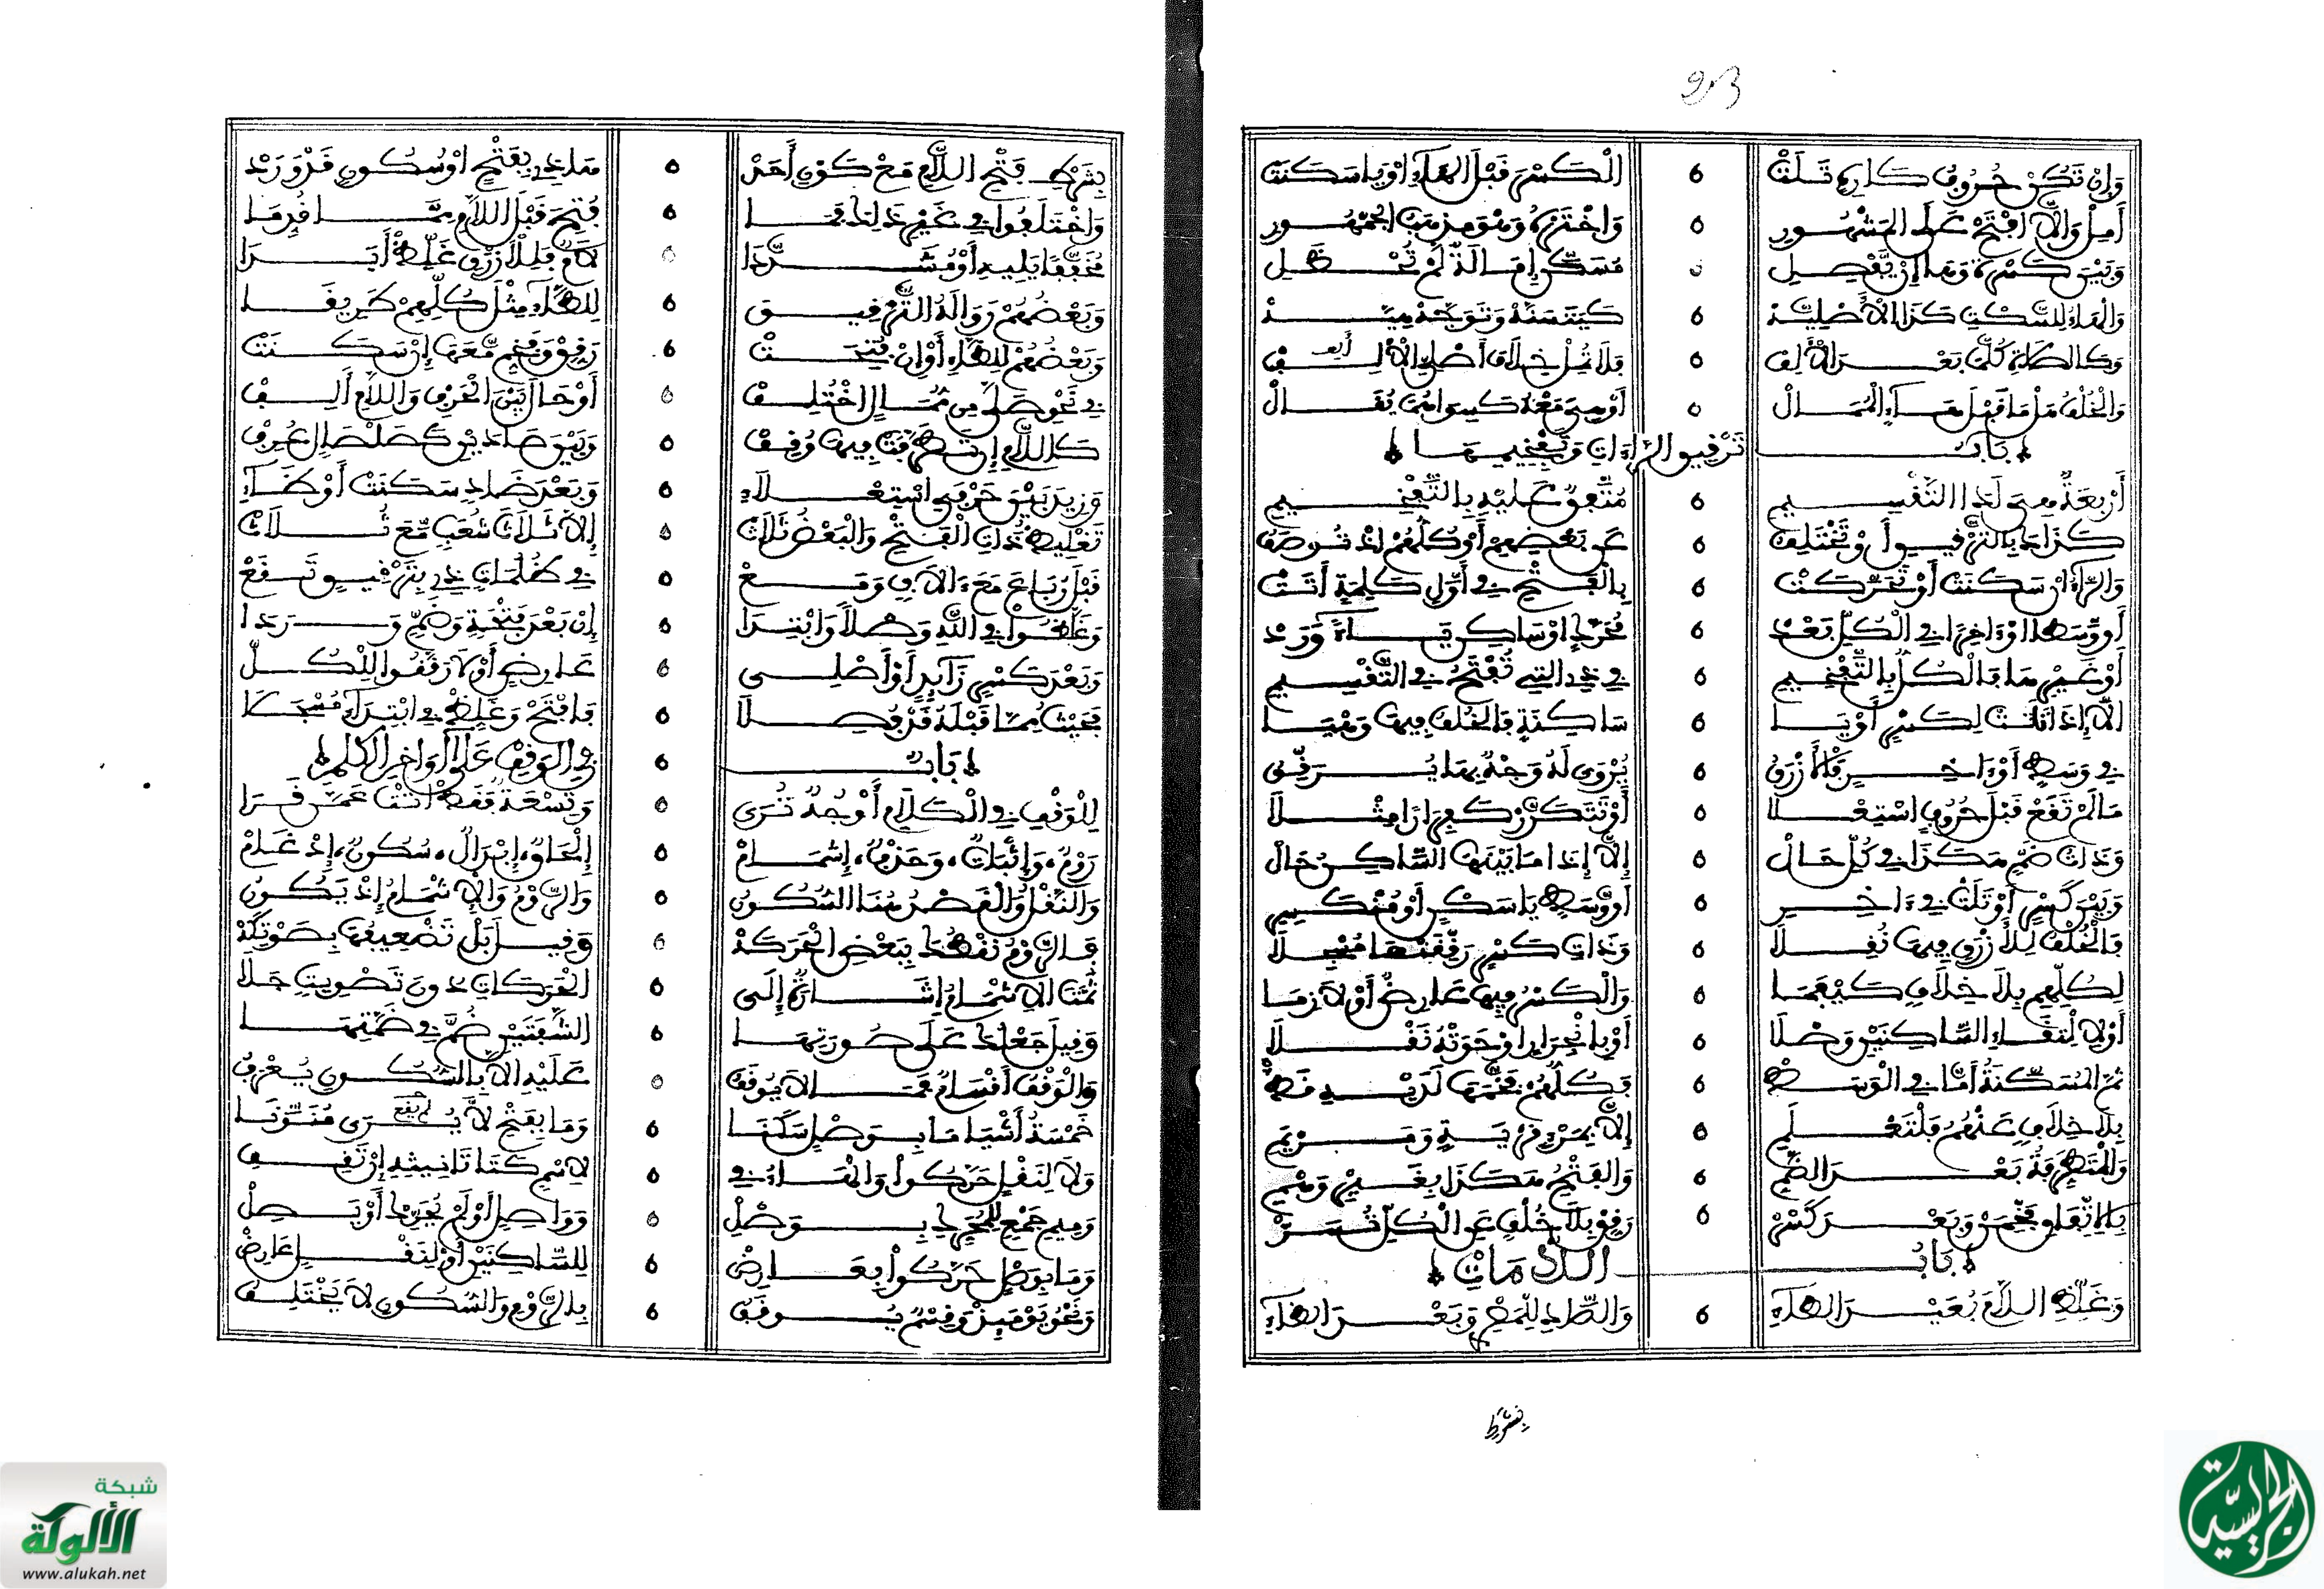 وَإِن تَكُنْ حُرُوفُ كَارِهٍ تَلَتْ الْكَسْرَ قَبْلَ الهَاءِ أَوْ يَا سَكَنَتْ
أَمِلْ وَإِلَّا افْتَحْ عَلَى المَشْهُورِ وَاخْتَرْهُ وَهْوَ مَذْهَبُ الجُمْهُورِ
وَبَيْنَ كَسْرَةٍ وَهَا إِنْ يَفْصِلِ مُسَكَّنٌ إِمَالَةً لَمْ تُحْظَلِ
وَالْهَاءُ لِلسَّكْتِ كَذَا الأَصْلِيَّهْ كَيَتَسَنَّهْ وَتَوَجُّهْ مِيَّهْ
وَكَالصَّلَاةِ كُلُّ بَعْدَ الأَلِفِ فَلَا تُمِلْ خِلَافَ أَصْلِ الأَلِفِ
وَالْخُلْفُ هَلْ مَا قَبْلَ هَاءٍ الْمُمَالْ أَوْ هِيَ مَعْهُ كَسِوَاهُمَا يُقَالْ
بَابُ تَرْقِيقِ الرَّاءَاتِ وَتَفْخِيمِهَا
أَرْبَعَةٌ هِيَ لَدَا التَّقْسِيمِ مُتَّفَقٌ عَلَيْهِ بِالتَّفْخِيمِ
كَذَاكَ بِالتَّرْقِيقِ أَوْ تَخْتَلِفُ عَن بَعْضِهِمْ أَوْ كُلِّهِمْ إِذْ تُوصَفُ
وَالرَّاءُ إِنْ سَكَنَتْ أَوْ تَحَرَّكَتْ بِالْفَتْحِ فِي أَوَّلِ كَلِمَةٍ أَتَتْ
أَوْ وَسَطًا أَوْ ءَاخِرًا فِي الْكُلِّ بَعْدْ مُحَرَّكٍ أَوْ سَاكِنٍ يَاءً وَرَدْ
أَوْ غَيْرِهَا فَالْكُلُّ بِالتَّفْخِيمِ فِي ذِي التِي تُفْتَحُ فِي التَّقْسِيمِ
إلَّا إِذَا تَلَتْ لِكَسْرٍ أَوْ يَا سَاكِنَةٍ فَالْخُلْفُ فِيهَا وَهْيَا
فِي وَسَطٍ أَوْ ءَاخِرٍ فَالأَزْرَقُ يُرْوَى لَهُ وَجْهٌ بِهَا يُرَقِّقُ
مَا لَمْ تَقَعْ قَبْلَ حُرُوفِ اسْتِعْلَا أَوْ تَتَكَرَّرْ كَفِرَارًا مِثْلَا
وَذَاتُ ضَمٍّ هَكَذَا فِي كُلِّ حَالْ إِلَّا إِذَا مَا بَيْنَهَا السَّاكِنُ حَالْ
وَبَيْنَ كَسْرٍ أَوْ تَلَتْ فِي ءَاخِرِ أَوْ وَسَطٍ يَا سَكْنٍ أَوْ مُنْكَسِرِ
فَالْخُلْفُ لِلأَزْرَقِ فِيهَا نُقِلَا وَذَاتُ كَسْرٍ رَقِّقَنْهَا مُسْجَلَا
لِكُلِّهِمْ بِلَا خِلَافٍ كَيْفَمَا وَالْكَسْرُ فِيهَا عَارِضٌ أَوْ لَازِمَا
أَوْ لِالْتِقَاءِ السَّاكِنَيْنِ وَصْلَا أَوْ بِانْجِرَارٍ أَوْ حَوَتْهُ نَقْلَا
ثُمَّ الْمُسَكَّنَةُ أَمَّا فِي الْوَسَطْ فَكُلُّهُمْ فَخَّمَهَا لَدَيْهِ قَطْ
بِلَا خِلَافٍ عَنْهُمُ فَلْتَعْلَمِ إِلَّا بِمَرْءِ قَرْيَةٍ وَمَرْيَمِ
وَالْمُتَطَرِّفَةُ بَعْدَ الضَّمِّ وَالْفَتْحُ هَكَذَا بِغَيْرِ وَهْمِ
بِالِاتِّفَاقِ فَخِّمَنْ وَبَعْدَ كَسْرْ رَقِّقْ بِلَا خُلْفٍ عَنِ الْكُلِّ تُسَرْ
بَابُ اللَّامَاتِ
وَغَلِّظِ اللَّامَ بُعَيْدَ الظَّاءِ وَالصَّادِ لِلْمِصْرِي وَبَعْدَ الطَّاءِ
بِشَرْطِ
بِشَرْطِ فَتْحِ اللَّامِ مَعْ كَوْنِ أَحَدْ هَاذِي بِفَتْحٍ أَوْ سُكُونٍ قَدْ وَرَدْ
وَاخْتَلَفُوا فِي غَيْرِ ذَلِكَ فَمَا فُتِحَ قَبْلَ اللَّامِ مِمَّا قُدِّمَا
مُخَفَّفًا يَلِيهِ أَوْ مُشَدَّدَا لَامٌ فَلِلْأَزْرَقِ غَلِّظْ أَبَدَا
وَبَعْضُهُمْ رَوَى لَهُ التَّرْقِيقَ لِلظَّاءِ مِثْلَ كُلِّهِمْ طَرِيقَا
وَبَعْضُهُمْ لِلطَّاءِ أَوْ إِنْ فُتِحَتْ رَقِّقْ وَفَخِّمْ مَعَهَا إِنْ سَكَنَتْ
فِي نَحْوِ صَلَّى مِن مُمَالٍ اخْتُلِفْ أَوْ حَالَ بَيْنَ الْحَرْفِ وَاللَّامِ أَلِفْ
كَاللَّامِ إِن تَطَرَّفَتْ فِيهَا وُقِفْ وَبَيْنَ صَادَيْنِ كَصَلْصَالٍ عُرِفْ
وَزِيدَ بَيْنَ حَرْفَيِ اسْتِعْلَاءِ وَبَعْدَ ضَادٍ سَكَنَتْ أَوْ ظَاءِ
تَغْلِيظُ ذَاتِ الْفَتْحِ وَالْبَعْضُ ثَلَاثْ إِلَّا ثَلَاثَ شُعَبٍ مَّعَ ثُلَاثْ
قَبْلَ رُبَاعَ مَعَ ءَالَافٍ وَمَعْ فِي ظُلُمَاتٍ ذِي بِتَرْقِيقٍ تَقَعْ
وَغَلَّظُوا فِي اللَّهِ وَصْلًا وَابْتِدَا إِن بَعْدَ فَتْحَةٍ وَضَمٍّ وَرَدَا
وَبَعْدَ كَسْرٍ زَائِدٍ أَوْ أَصْلِي عَارِضٍ أَوْ لَا رَقَّقُوا لِلْكُلِّ
فَحَيْثُ مِمَّا قَبْلَهُ قَدْ فُصِلَا فَافْتَحْ وَغَلِّظْ فِي ابْتِدَاءٍ مُسْجَلَا
بَابُ فِي الوَقْفِ عَلَى أَوَاخِرِ الْكَلِمِ
لِلْوَقْفِ فِي الْكَلَامِ أَوْجُهٌ تُرَى وَتِسْعَةٌ فَقَطْ أَتَتْ عَمَّن قَرَا
رَوْمٌ، وَإِثْبَاتٌ، وَحَذْفٌ، إِشْمَامْ إِلْحَاقٌ، إِبْدَالٌ، سُكُونٌ، إِدْغَامْ
وَالنَّقْلُ وَالْقَصْدُ هُنَا السُّكُونُ وَالرَّوْمُ وَالْإِشْمَامُ إِذْ يَكُونُ
فَالرَّوْمُ نُطْقُكَ بِبَعْضِ الْحَرَكَهْ وَقِيلَ بَلْ تَضْعِيفُهَا بِصَوْتِكَهْ
ثُمَّتَ الإِشْمَامُ إِشَارَةٌ إِلَى الْحَرَكَاتِ دُونَ تَصْوِيتٍ جَلَا
وَقِيلَ جَعْلُكَ عَلَى صُورَتِهَا الشَّفَتَيْنِ ضُمَّ فِي ضَمَّتِهَا
وَالْوَقْفُ أَقْسَامٌ فَمَا لَا يُوقَفُ عَلَيْهِ إِلَّا بِالسُّكُونِ يُعْرَفُ
خَمْسَةُ أَشْيَا مَا بِوَصْلٍ سَكَنَا وَمَا بِفَتْحٍ لَا يُرَى مُنَوَّنَا
وَلَا لِنَقْلٍ حَرَّكُوا وَالْهَاءُ فِي لِاسْمٍ كَتَا تَانِيثِهِ إِنْ تَقِفِ
وَمِيمُ جَمْعٍ لِلْمُحَرِّكِ بِوَصْلْ وَوَاصِلٍ أَوْ لَمْ يُحَرِّكْ أَوْ يَصِلْ
وَمَا بِوَصْلٍ حَرَّكُوا بِعَارِضْ لِلسَّاكِنَيْنِ أَوْ لِنَقْلٍ عَارِضْ
وَنَحْوُ يَوْمَئِذٍ وَقِسْمٌ يُوقَفُ بِالرَّوْمِ وَالسُّكُونِ لَا يَخْتَلِفُ
شبكة
الألوكة
www.alukah.net